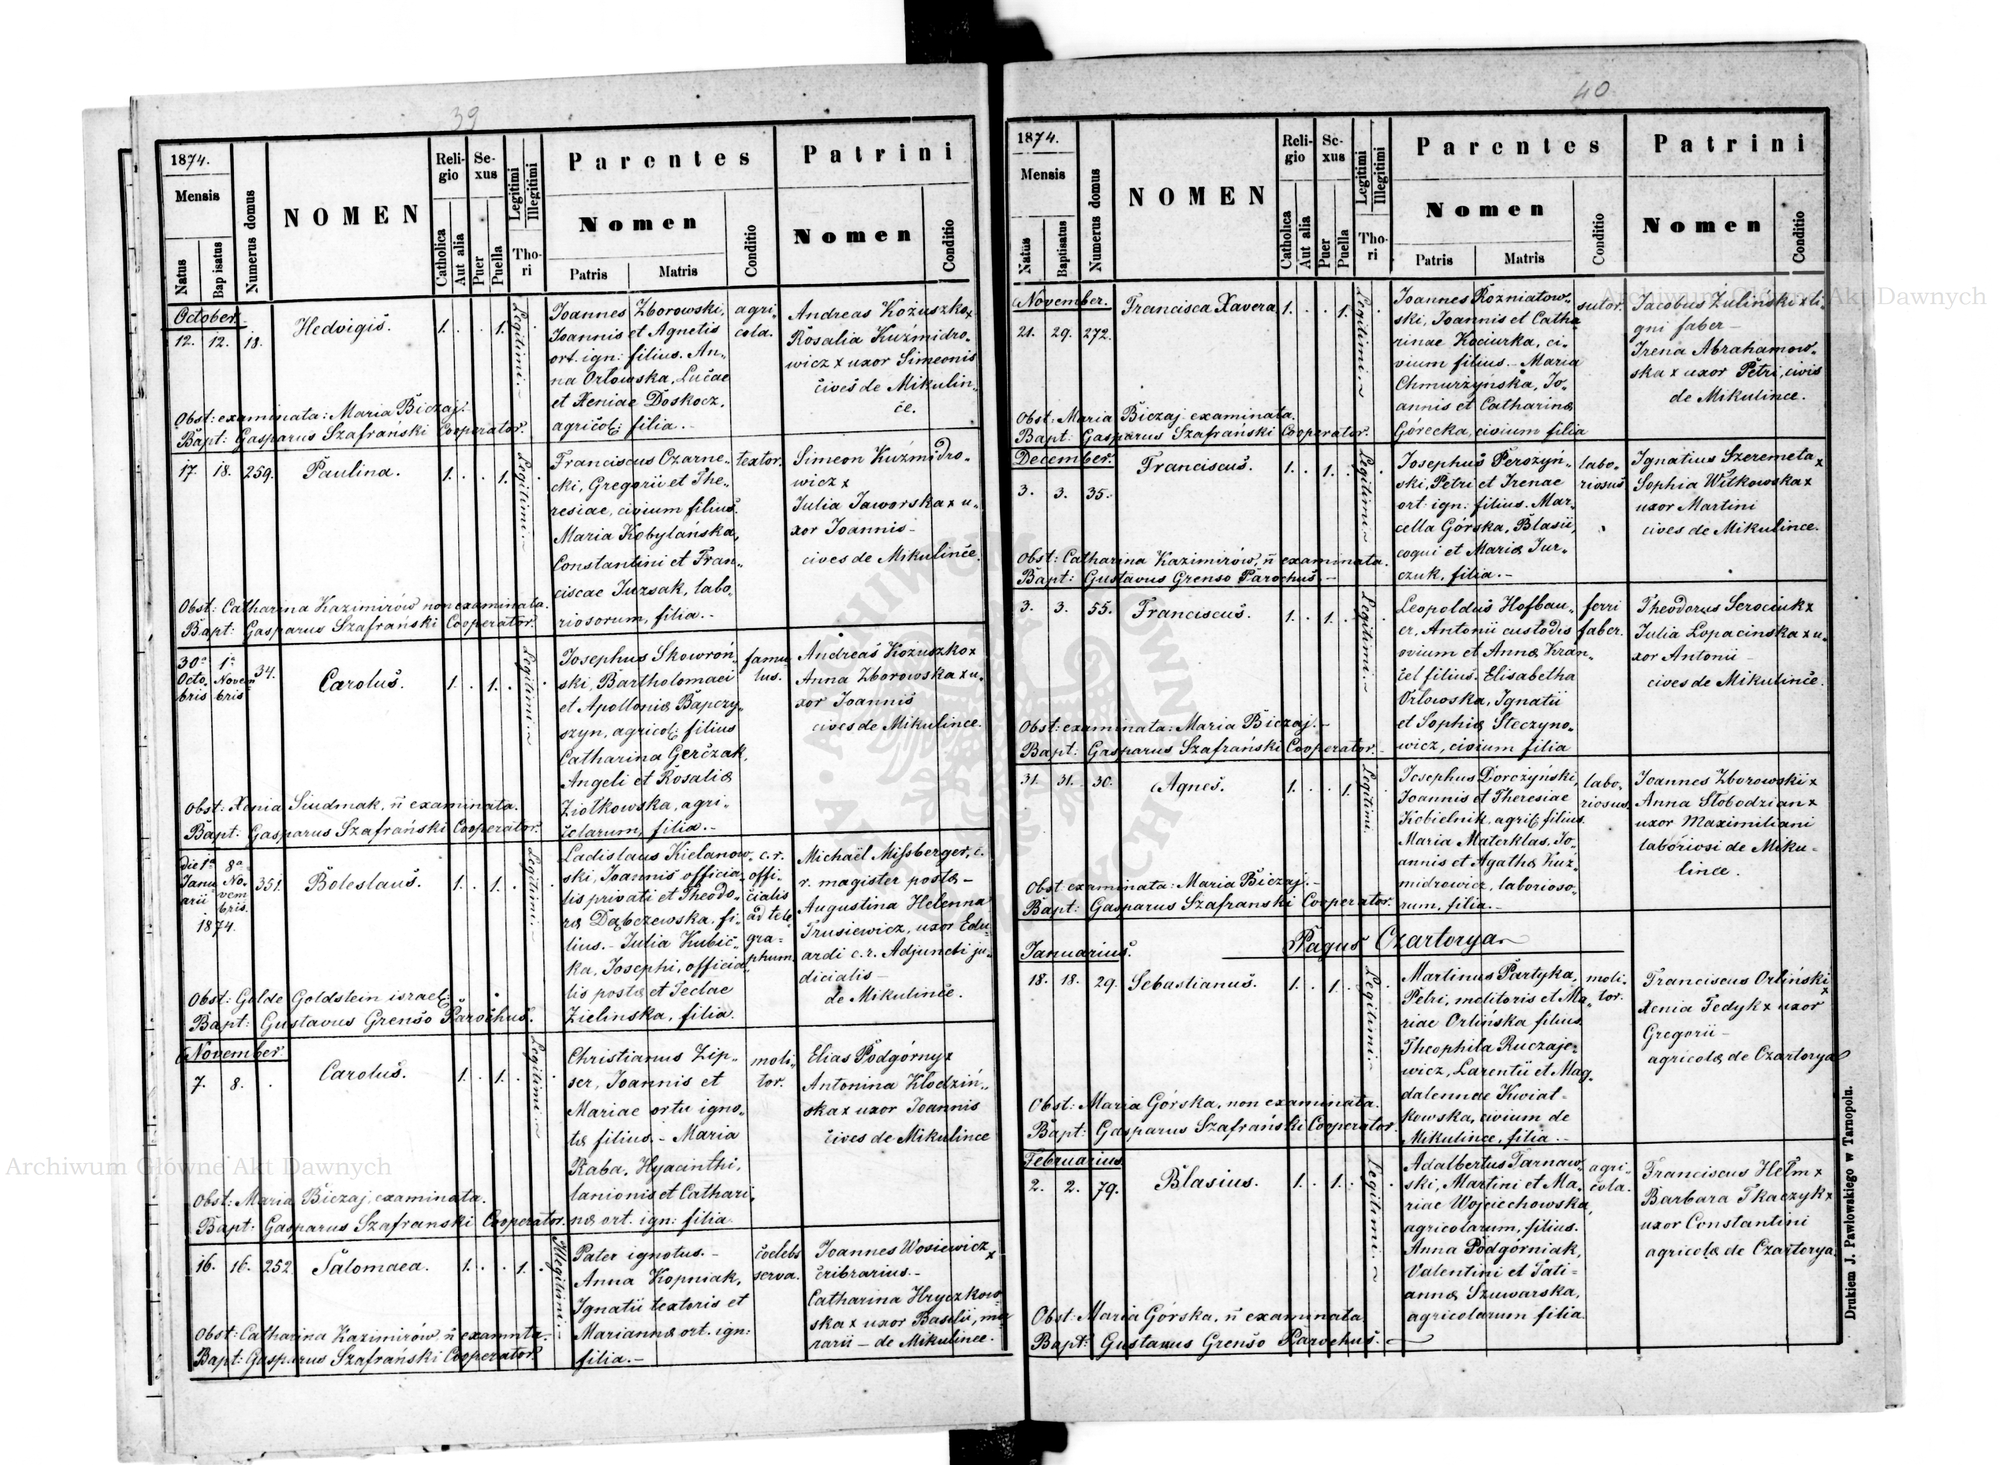 39
1874.
Mensis
Natus
Bap isatus
Numerus domus
NOMEN
Religio
Catholica
Aut alia
Sexus
Puer
Puella
Legitimi
Illegitimi
Thori
Parentes
Nomen
Patris
Matris
Conditio
Patrini
Nomen
Conditio
October.
12. 12. 18. Hedvigis. 1. . . 1. Legitimi
Joannes Zborowski,
Joannis et Agnetis
ort. ign: filius. An-
na Orłowska, Lucae
et Xeniae Doskocz,
agricol: filia.-
agri-
cola.
Andreas Kożuszko x
Rosalia Kuźmidro-
wicz x uxor Simeonis
cives de Mikulin-
ce.
Obst: examinata: Maria Biczaj.
Bapt: Gasparus Szafrański Cooperator.
17. 18. 259. Paulina. 1. . . 1. Legitimi
Franciscus Czarne-
cki, Gregorii et The-
resiae, civium filius.
Maria Kobylańska,
Constantini et Fran-
ciscae Juzsak, labo-
riosorum, filia.-
textor.
Simeon Kuźmidro-
wicz x
Julia Jaworska x u-
xor Joannis-
cives de Mikulince.
Obst: Catharina Kazimirów non examinata.
Bapt: Gasparus Szafrański Cooperator.
30a Octobris 1a Novembris 34. Carolus. 1. . 1. . Legitimi
Josephus Skowroń-
ski, Bartholomaei
et Apolloniæ Bapczy-
szyn, agricol: filius
Catharina Gerczak,
Angeli et Rosaliæ
Ziołkowska, agri-
colarum, filia.-
famu-
lus.
Andreas Kozuszko x
Anna Zborowska x u-
xor Joannis
cives de Mikulince.
Obst: Xenia Siudmak, ñ examinata.
Bapt: Gasparus Szafrański Cooperator.
die 1a Januarii 1874. 8a Novembris. 351. Boleslaus. 1. . 1. . Legitimi
Ladislaus Kielanow-
ski, Joannis officia-
lis privati et Theodo-
ræ Dąbczewska, fi-
lius.- Julia Kubic-
ka, Josephi, officia-
lis postæ et Teclae
Zielinska, filia.
c. r.
offi-
cialis
ad tele-
gra-
phum.
Michaël Missberger, c.
r. magister postæ-
Augustina Helenna
Trusiewicz, uxor Edu-
ardi c. r. Adjuncti ju-
dicialis-
de Mikulince.
Obst: Golde Goldstein israel:
Bapt: Gustavus Grenso Parochus.
November.
7. 8. . Carolus. 1. . 1. . Legitimi
Christianus Zip-
ser, Joannis et
Mariae ortu igno-
tæ filius.- Maria
Raba, Hyacinthi,
lanionis et Cathari-
næ ort. ign: filia.
moli-
tor.
Elias Podgórny x
Antonina Kłodziń-
ska x uxor Joannis
cives de Mikulince
Obst: Maria Biczaj, examinata.
Bapt: Gasparus Szafranski Cooperator.
16. 16. 252 Salomaea. 1. . . 1. Illegitimi
Pater ignotus.-
Anna Kopniak,
Ignatii textoris et
Mariannæ ort. ign:
filia.-
coelebs
serva.
Joannes Wosiewicz x
cribrarius.-
Catharina Hryczkow-
ska x uxor Basilii, mo-
narii - de Mikulince.
Obst: Catharina Kazimirów ñ examnta.
Bapt: Gasparus Szafrański Cooperator.
40
1874.
Mensis
Natus
Bapisatus
Numerus domus
NOMEN
Religio
Catholica
Aut alia
Sexus
Puer
Puella
Legitimi
Illegitimi
Thori
Parentes
Nomen
Patris
Matris
Conditio
Patrini
Nomen
Conditio
November.
21. 29. 272. Francisca Xavera 1. . . 1. Legitimi
Joannes Rozniatow-
ski, Joannis et Catha
rinae Kociurka, ci-
vium filius.- Maria
Chmurzynska, Jo-
annis et Catharinæ
Górecka, civium filia
sutor.
Jacobus Zulinski x li-
gni faber-
Irena Abrahamow-
ska x uxor Petri, civis
de Mikulince.
Obst: Maria Biczaj examinata.
Bapt: Gasparus Szafrański Cooperator.
December.
3. 3. 35. Franciscus. 1. . 1. . Legitimi
Josephus Perożyń-
ski, Petri et Irenae
ort: ign: filius. Mar-
cella Górska, Blasii,
coqui et Mariæ Jur-
czuk, filia.-
labo-
riosus
Ignatius Szeremeta x
Sophia Witkowska x
uxor Martini
cives de Mikulince.
Obst: Catharina Kazimirów, ñ examinata.
Bapt: Gustavus Grenso Parochus.-
3. 3. 55. Franciscus. 1. . 1. . Legitimi
Leopoldus Hofbau-
er, Antonii custodis
ovium et Annæ Kran-
cel filius. Elisabetha
Orłowska, Ignatii
et Sophiæ Steczyno-
wicz, civium filia
ferri
faber.
Theodorus Serociuk x
Julia Lopacinska x u-
xor Antonii-
cives de Mikulince.
Obst: examinata: Maria Biczaj.-
Bapt: Gasparus Szafrański Cooperator.-
31. 31. 30. Agnes. 1. . . 1. Legitimi
Josephus Dorczyński,
Joannis et Theresiae
Kobielnik, agric: filius.
Maria Materklas, Jo-
annis et Agathæ Kuz-
midrowicz, laborioso-
rum, filia.-
labo-
riosus
Joannes Zborowski x
Anna Słobodzian x
uxor Maximiliani
laboriosi de Miku-
lince.
Obst examinata: Maria Biczaj.-
Bapt: Gasparus Szafranski Cooperator.
Pagus Czartorya
Januarius.
18. 18. 29. Sebastianus. 1. . 1. . Legitimi
Martinus Partyka,
Petri, molitoris et Ma-
riae Orlińska filius.
Theophila Ruczaje-
wicz, Larentii et Mag-
dalennae Kwiat-
kowska, civium de
Mikulince, filia.-
moli-
tor.
Franciscus Orliński x
Xenia Fedyk x uxor
Gregorii-
agricolæ de Czartorya
Obst: Maria Górska, non examinata.
Bapt: Gasparus Szafrański Cooperator.
Februarius
2. 2. 79. Blasius. 1. . 1. . Legitimi
Adalbertus Tarnaw-
ski, Martini et Ma-
riae Wojciechowska,
agricolarum, filius.
Anna Podgórniak,
Valentini et Tati-
annæ Szuwarska,
agricolarum filia.
agri-
cola.
Franciscus Hełm x
Barbara Tkaczyk x
uxor Constantini
agricolæ de Czartorya
Obst: Maria Górska, ñ examinata
Bapt: Gustavus Grenso Parochus.-
Drukiem J. Pawlowskiego w Tarnopolu.
Archiwum Główne Akt Dawnych
Archiwum Główne Akt Dawnych